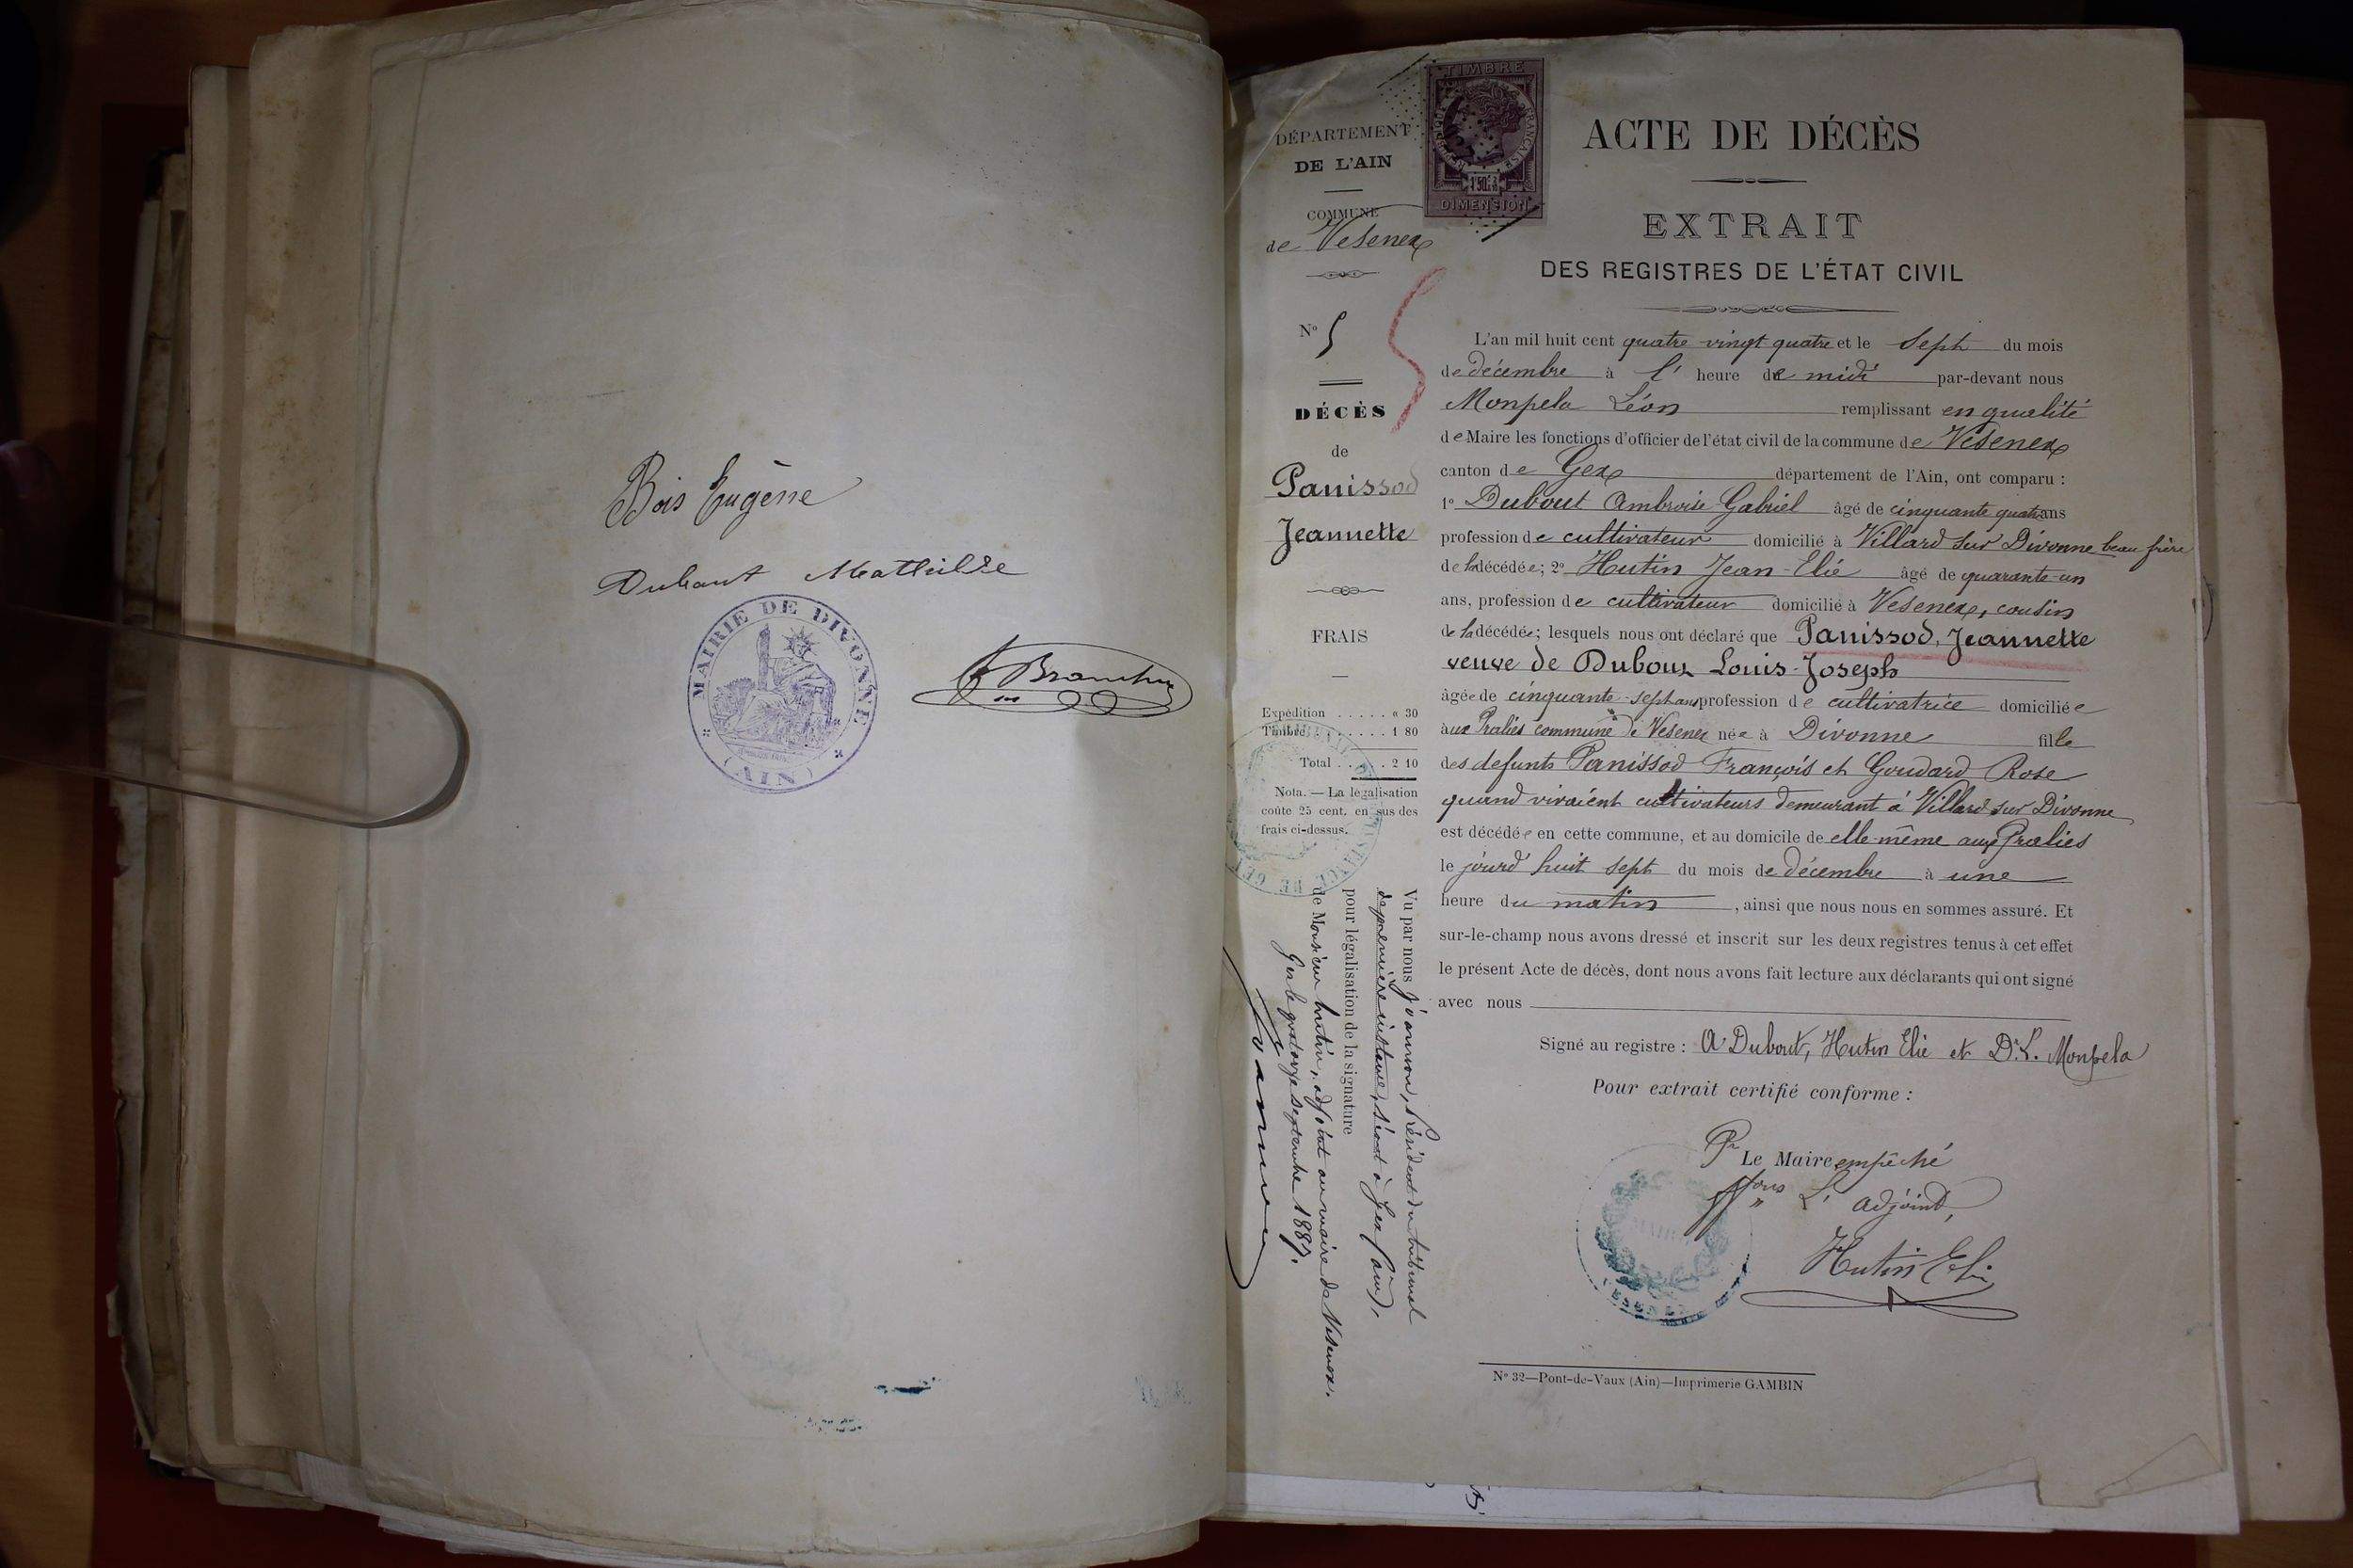 Bois Eugène
Dubout Mathilde
MAIRIE DE DIVONNE
(AIN)
DÉPARTEMENT
DE L'AIN
COMMUNE
de Vesenex
N° 5
DÉCÈS
de
Panissod
Jeannette
FRAIS
Expédition . . . . . « 30
Timbre . . . . . . . 1 80
Total . . . . . 2 10
Nota. — La légalisation
coûte 25 cent. en sus des
frais ci-dessus.
Vu par nous Joannon, Président du tribunal
de première instance, séant à Gex (ain),
pour légalisation de la signature
de Monsieur hutin, adjoint au maire de Vesenex.
Gex le quatorze septembre 1887.
TIMBRE
RÉPUBLIQUE FRANÇAISE
DIMENSION
ACTE DE DÉCÈS
EXTRAIT
DES REGISTRES DE L'ÉTAT CIVIL
L'an mil huit cent quatre vingt quatre et le sept du mois
de décembre à l' heure de midi par-devant nous
Monpela Léon remplissant en qualité
de Maire les fonctions d'officier de l'état civil de la commune de Vesenex
canton de Gex département de l'Ain, ont comparu :
1° Dubout Ambroise Gabriel âgé de cinquante quatre ans
profession de cultivateur domicilié à Villard sur Divonne beau frère
de la décédée; 2° Hutin Jean-Elie âgé de quarante-un
ans, profession de cultivateur domicilié à Vesenex, cousin
de la décédée; lesquels nous ont déclaré que Panissod, Jeannette
veuve de Dubout Louis-Joseph
âgée de cinquante-sept ans profession de cultivatrice domiciliée
aux Pralies commune de Vesenex née à Divonne fille
des defunts Panissod François et Goudard Rose
quand vivaient cultivateurs demeurant à Villard sur Divonne
est décédée en cette commune, et au domicile de elle-même aux Pralies
le jourd'huit sept du mois de décembre à une
heure du matin, ainsi que nous nous en sommes assuré. Et
sur-le-champ nous avons dressé et inscrit sur les deux registres tenus à cet effet
le présent Acte de décès, dont nous avons fait lecture aux déclarants qui ont signé
avec nous
Signé au registre : A Dubout, Hutin Elie et Dr L. Monpela
Pour extrait certifié conforme :
Pr Le Maire empêché
L' adjoint,
Hutin Elie
N° 32—Pont-de-Vaux (Ain)—Imprimerie GAMBIN